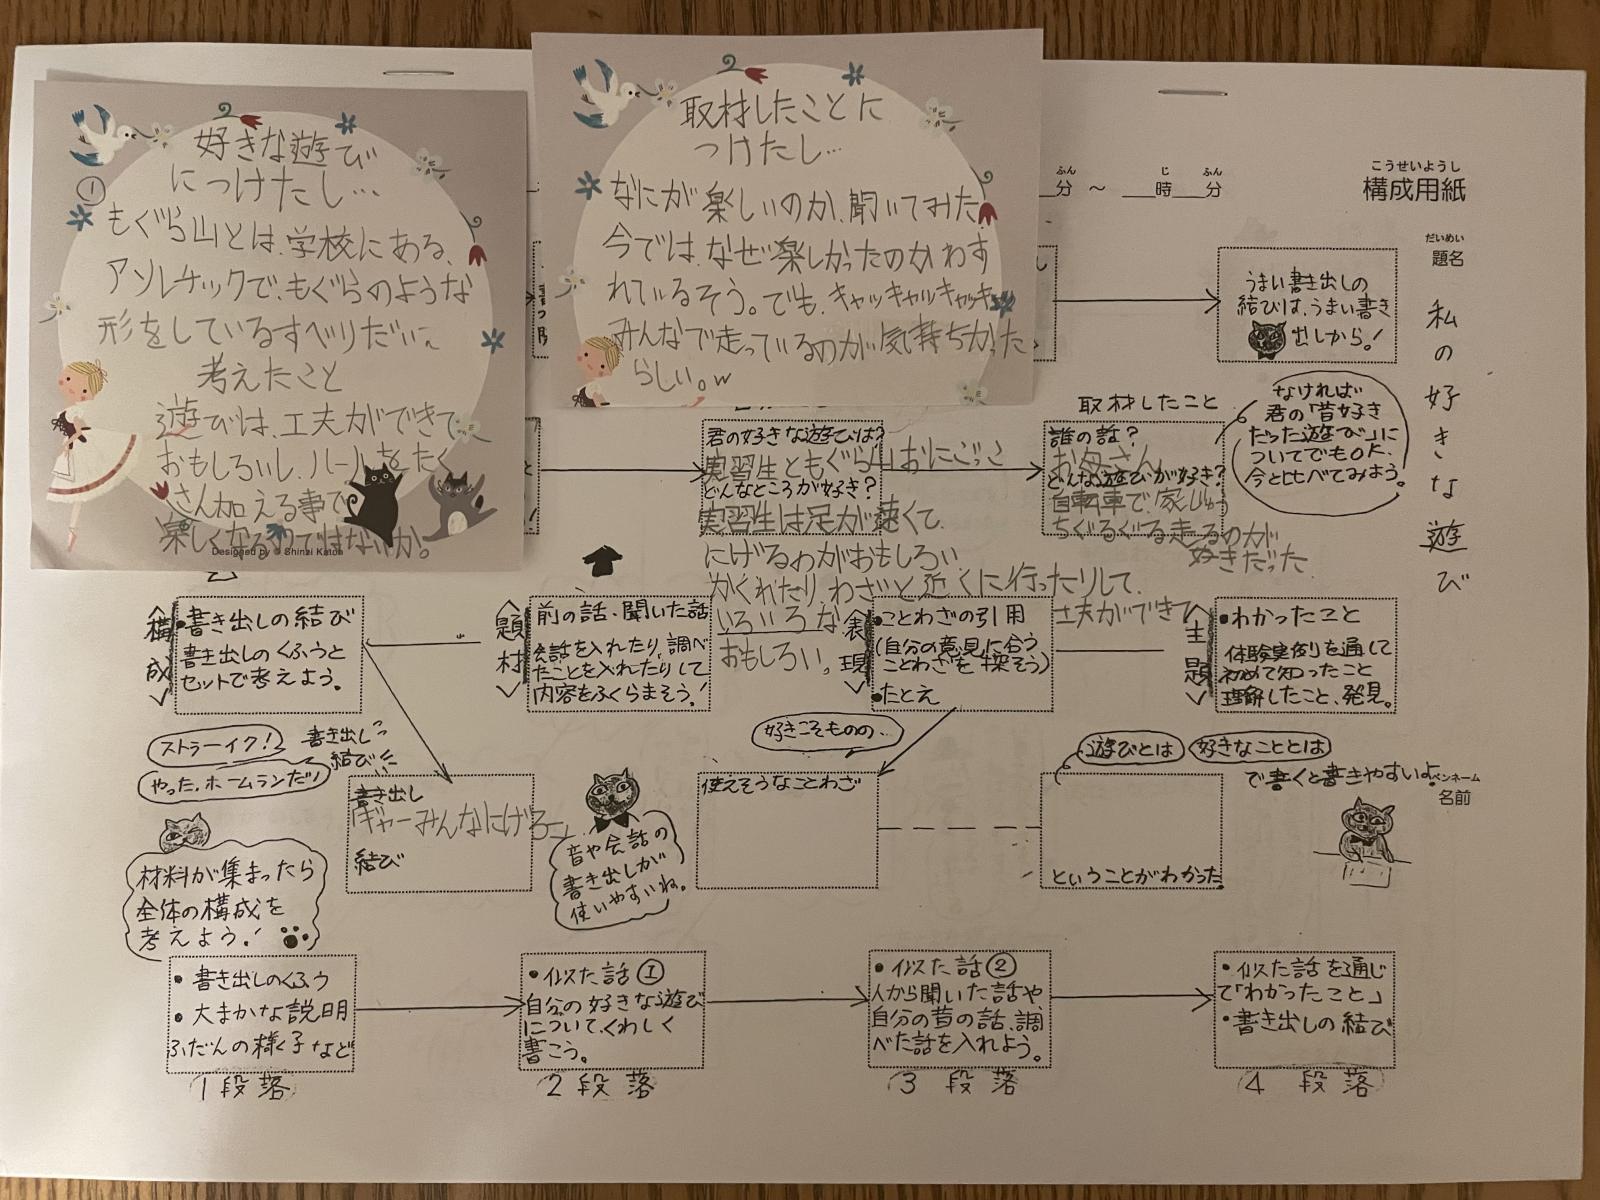 好きな遊び
につけたし…
①
もぐら山とは、学校にある、
アソレチックで、もぐらのような
形をしているすべりだい。
考えたこと
遊びは、工夫ができて、
おもしろいし、ルールをたく
さん加える事で
楽しくなるのではないか。
Designed by © Shinzi Katoh
取材したことに
つけたし…
なにが楽しいのか、聞いてみた。
今では、なぜ楽しかったのかわす
れているそう。でも、キャッキャッキャッキャ
みんなで走っているのが気持ちかった
らしい。w
ふん
分 ～
じ
時
ふん
分
こうせいようし
構成用紙
だいめい
題名
私の好きな遊び
うまい書き出しの
結びは、うまい書き
出しから!
君の好きな遊びは?
実習生ともぐら山おにごっこ
どんなところが好き?
実習生は足が速くて、
にげるわがおもしろい
かくれたり、わざと近くに行ったりして、
いろいろな
工夫ができて
おもしろい。
取材したこと
誰の話?
お母さん
どんな遊びが好き?
自転車で家じゅう
ちぐるぐる走るのが
好きだった
なければ
君の「昔好き
だった遊び」に
ついてでもOK、
今と比べてみよう。
<構成>
・書き出しの結び
書き出しのくふうと
セットで考えよう。
<題材>
前の話・聞いた話
会話を入れたり、調べ
たことを入れたりして
内容をふくらまそう!
<表現>
・ことわざの引用
(自分の意見に合う
ことわざを探そう)
・たとえ
<主題>
・わかったこと
体験実例を通して
初めて知ったこと
理解したこと、発見。
ストラーイク!
やった、ホームランだ!
書き出しっ
結び
書き出し
ギャーみんなにげろー
結び
音や会話の
書き出しが
使いやすいね。
好きこそものの…
使えそうなことわざ
遊びとは
好きなこととは
で書くと書きやすいよ
ということがわかった。
ペンネーム
名前
材料が集まったら
全体の構成を
考えよう!
・書き出しのくふう
・大まかな説明
ふだんの様子など
1段落
・似た話①
自分の好きな遊び
について、くわしく
書こう。
2段落
・似た話②
人から聞いた話や、
自分の昔の話、調
べた話を入れよう。
3段落
・似た話を通じ
て「わかったこと」
・書き出しの結び
4段落